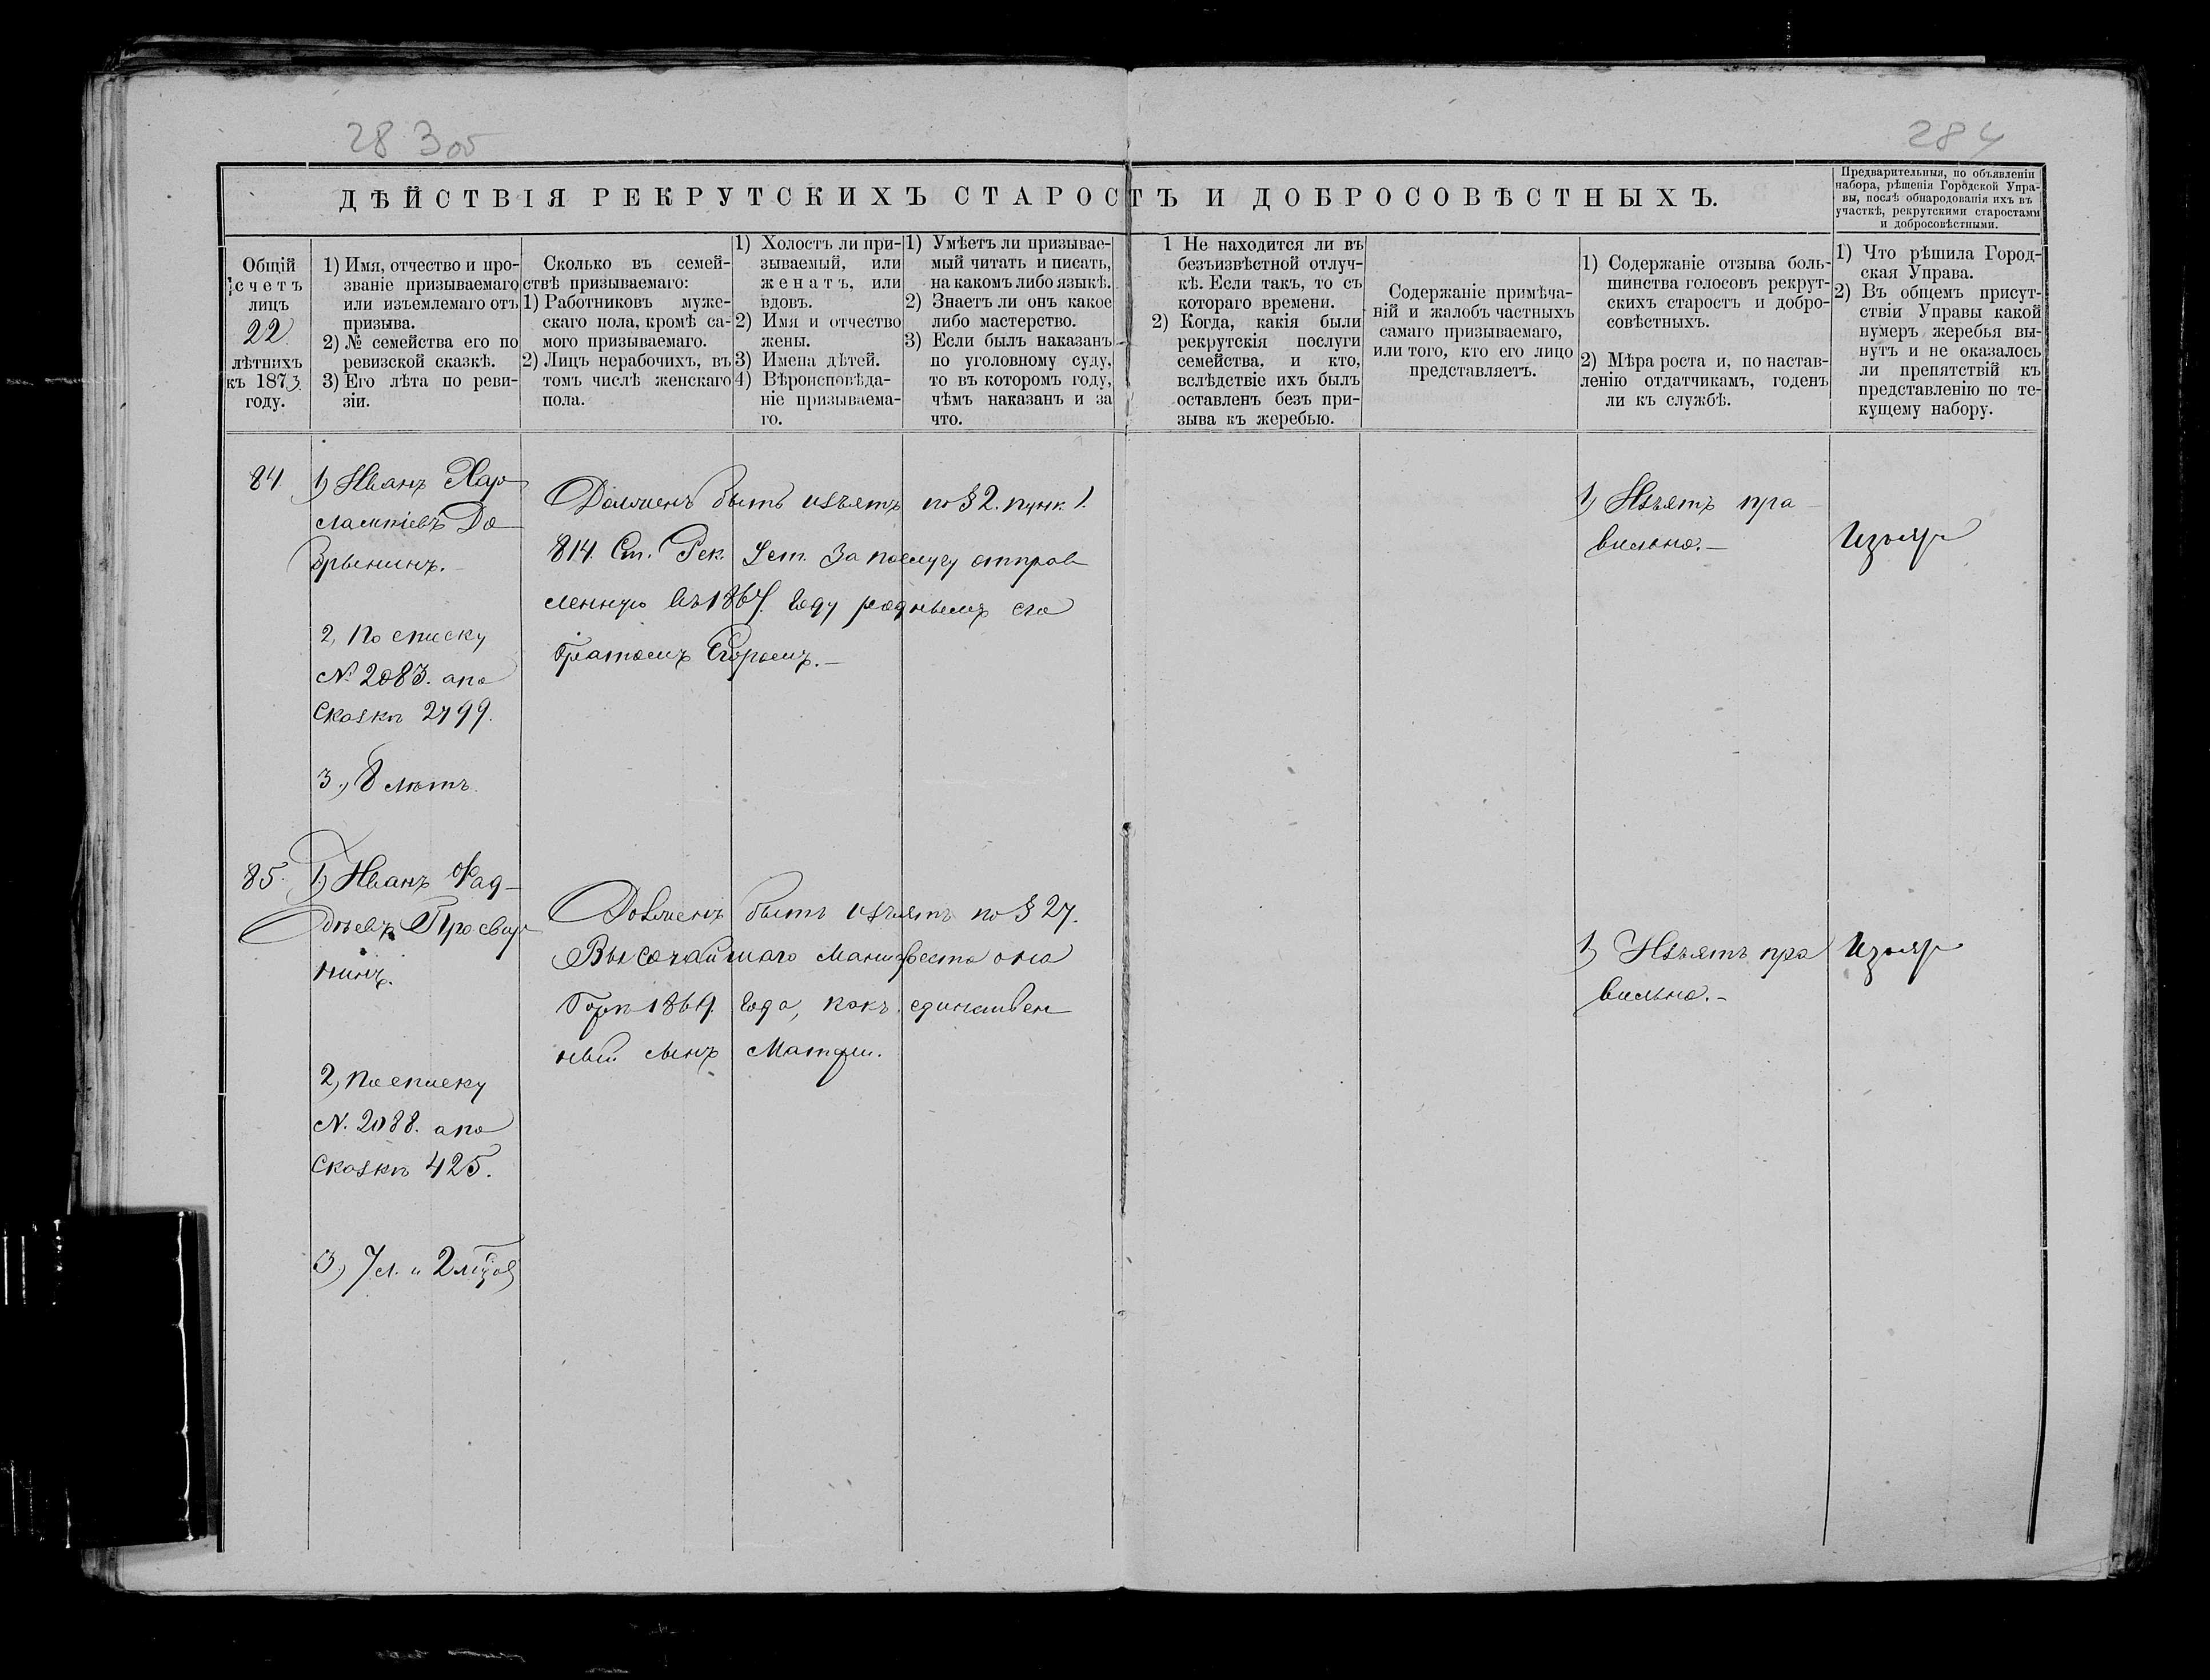 283 об
284
ДѢЙСТВІЯ РЕКРУТСКИХЪ СТАРОСТЪ И ДОБРОСОВѢСТНЫХЪ.
Предварительныя, по объявленіи
набора, рѣшенія Городской Упра-
вы, послѣ обнародованія ихъ въ
участкѣ, рекрутскими старостами
и добросовѣстными.
Общій
счетъ
лицъ
22
лѣтнихъ
къ 1873
году.
1) Имя, отчество и про-
званіе призываемаго
или изъемлемаго отъ
призыва.
2) № семейства его по
ревизской сказкѣ.
3) Его лѣта по реви-
зіи.
Сколько въ семей-
ствѣ призываемаго:
1) Работниковъ муже-
скаго пола, кромѣ са-
мого призываемаго.
2) Лицъ нерабочихъ, въ
томъ числѣ женскаго
пола.
1) Холостъ ли при-
зываемый, или
женатъ, или
вдовъ.
2) Имя и отчество
жены.
3) Имена дѣтей.
4) Вѣроисповѣда-
ніе призываема-
го.
1) Умѣетъ ли призывае-
мый читать и писать,
на какомъ либо языкѣ.
2) Знаетъ ли онъ какое
либо мастерство.
3) Если былъ наказанъ
по уголовному суду,
то въ которомъ году,
чѣмъ наказанъ и за
что.
1 Не находится ли въ
безъизвѣстной отлуч-
кѣ. Если такъ, то съ
котораго времени.
2) Когда, какія были
рекрутскія послуги
семейства, и кто,
вслѣдствіе ихъ былъ
оставленъ безъ при-
зыва къ жеребью.
Содержаніе примѣча-
ній и жалобъ частныхъ
самаго призываемаго,
или того, кто его лицо
представляетъ.
1) Содержаніе отзыва боль-
шинства голосовъ рекрут-
скихъ старостъ и добро-
совѣстныхъ.
2) Мѣра роста и, по настав-
ленію отдатчикамъ, годенъ
ли къ службѣ.
1) Что рѣшила Город-
ская Управа.
2) Въ общемъ присут-
ствіи Управы какой
нумеръ жеребья вы-
нутъ и не оказалось
ли препятствій къ
представленію по те-
кущему набору.
84. 1) Иванъ Хар
лампіевъ До
брынинъ.
2, По списку
№ 2083. а по
Сказкѣ 2799.
3., 8 лѣтъ.
Долженъ быть изъятъ по § 2. пунк. 1.
814. Ст. Рек. Уст. За послугу отправ
ленную въ 1867. году роднымъ его
братомъ Егоромъ. —
1) Изъятъ пра—
вильно. —
Изъят
85. 1.) Иванъ Фад—
дѣевъ Просвир
нинъ.
2, По списку
№. 2088. а по
Сказкѣ 425.
3., 7 л. и 2
Долженъ быть изъятъ по § 27.
Высочайшаго Манифеста о на
борѣ 1869. года, какъ единствен
ный сынъ Матери.
1) Изъятъ пра
вильно. —
Изъят